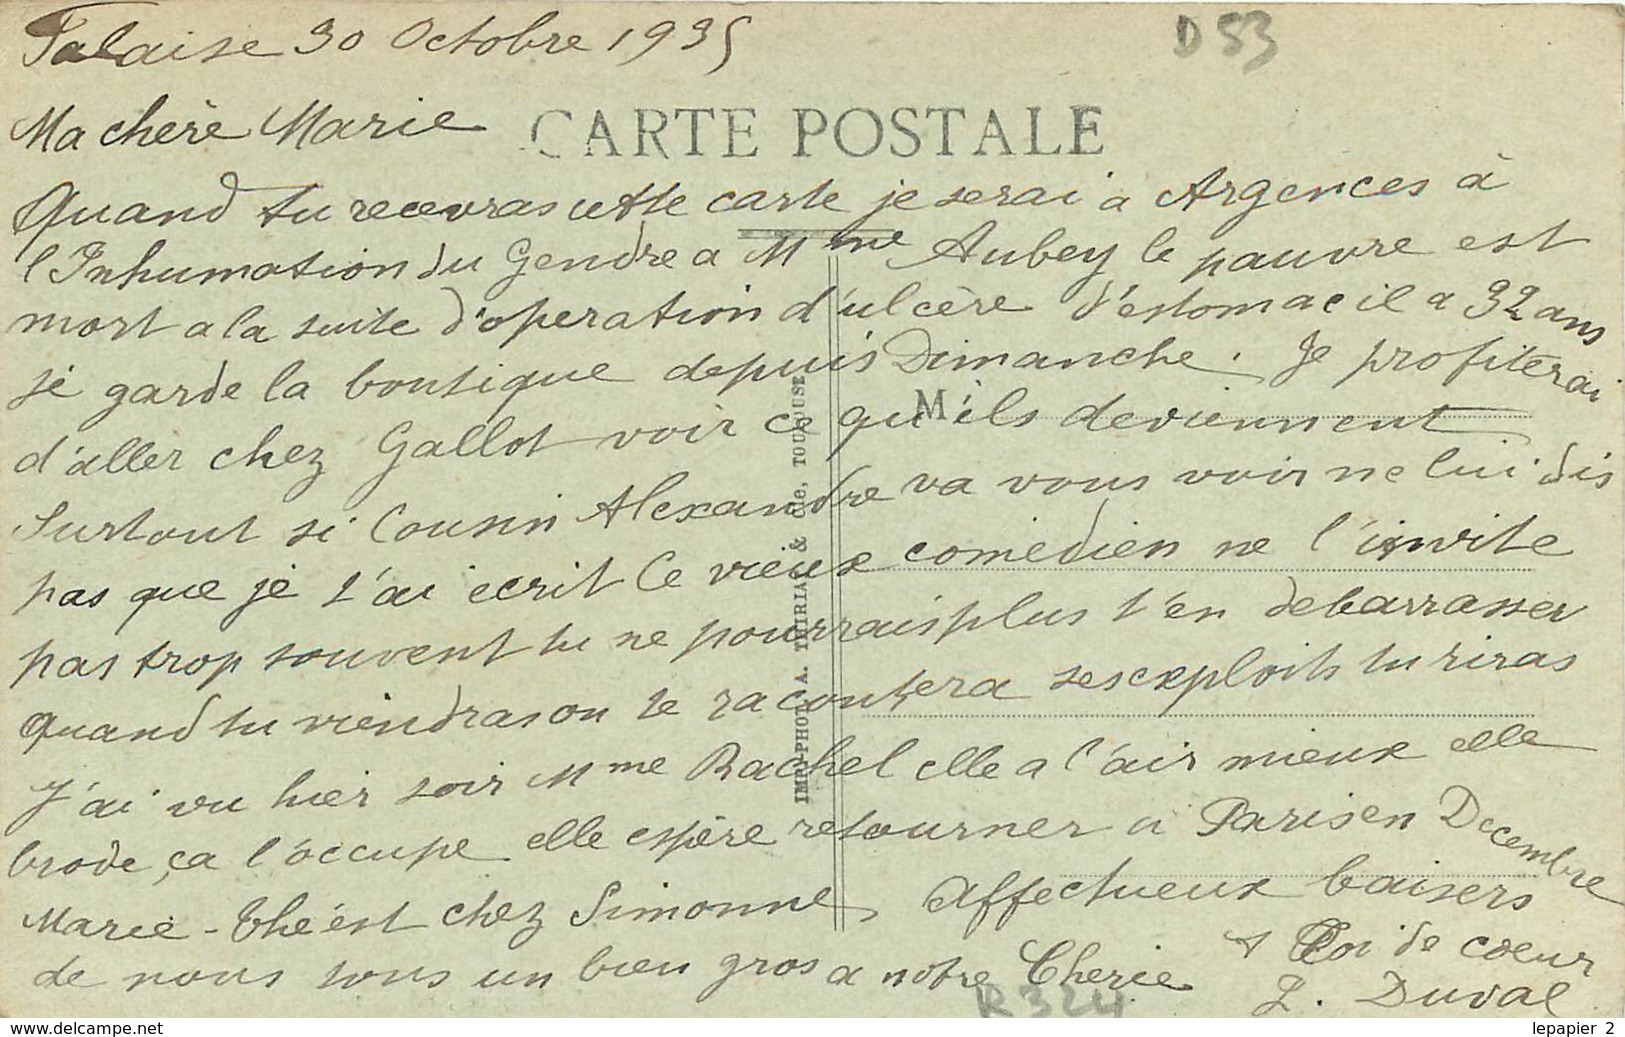 Falaise 30 Octobre 1935
D 53
Ma chère Marie
CARTE POSTALE
Quand tu recevras cette carte je serai a Argences à
l'Inhumation du Gendre a Mme Aubey le pauvre est
mort a la suite d'operation d'ulcère d'estomac il a 32 ans
je garde la boutique depuis Dimanche. Je profiterai
d'aller chez Gallot voir ce qu'ils deviennent
M
Surtout si Cousin Alexandre va vous voir ne lui dis
pas que je t'ai ecrit Ce vieux comedien ne l'invite
pas trop souvent tu ne pourrais plus t'en debarrasser
quand tu viendras on te racontera ses exploits tu riras
J'ai vu hier soir Mme Rachel elle a l'air mieux elle
brode, ça l'occupe elle espère retourner a Paris en Decembre
Marie-Thé est chez Simonne, affectueux baisers
de nous tous un bien gros a notre Cherie
a Toi de coeur
L. Duval
IMP. PHOT. A. THIRIAT & Cie, TOULOUSE
R324
lepapier_2